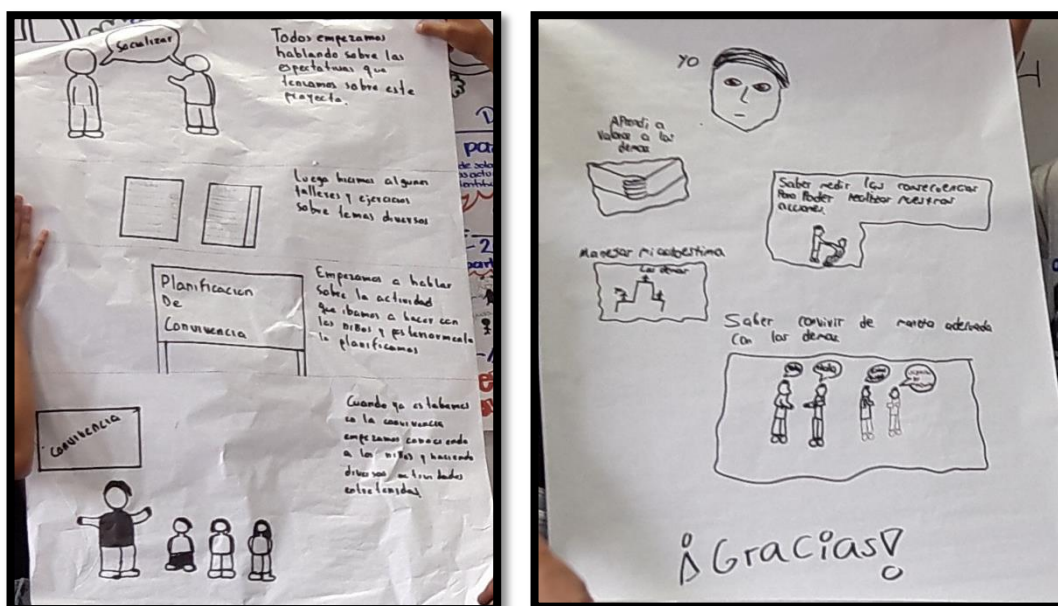 Socializar
Todos empezamos
hablando sobre las
espectativas que
teniamos sobre este
proyecto.
Luego hicimos algunos
talleres y ejercicios
sobre temas diversos
Planificacion
De
Convivencia
Empezamos a hablar
sobre la actividad
que ibamos a hacer con
los niños y posteriormente
la planificamos
Convivencia
Cuando ya estabamos
en la convivencia
empezamos conociendo
a los niños y haciendo
diversas actividades
entretenidas
YO
APrendi a
Valorar a los
demaz
Saber medir las consecuencias
Para Poder realizar nuestras
acciones.
Manejar mi autoestima
Los demaz
Saber convivir de manera adecuada
Con los demaz
Hola
¡Gracias!